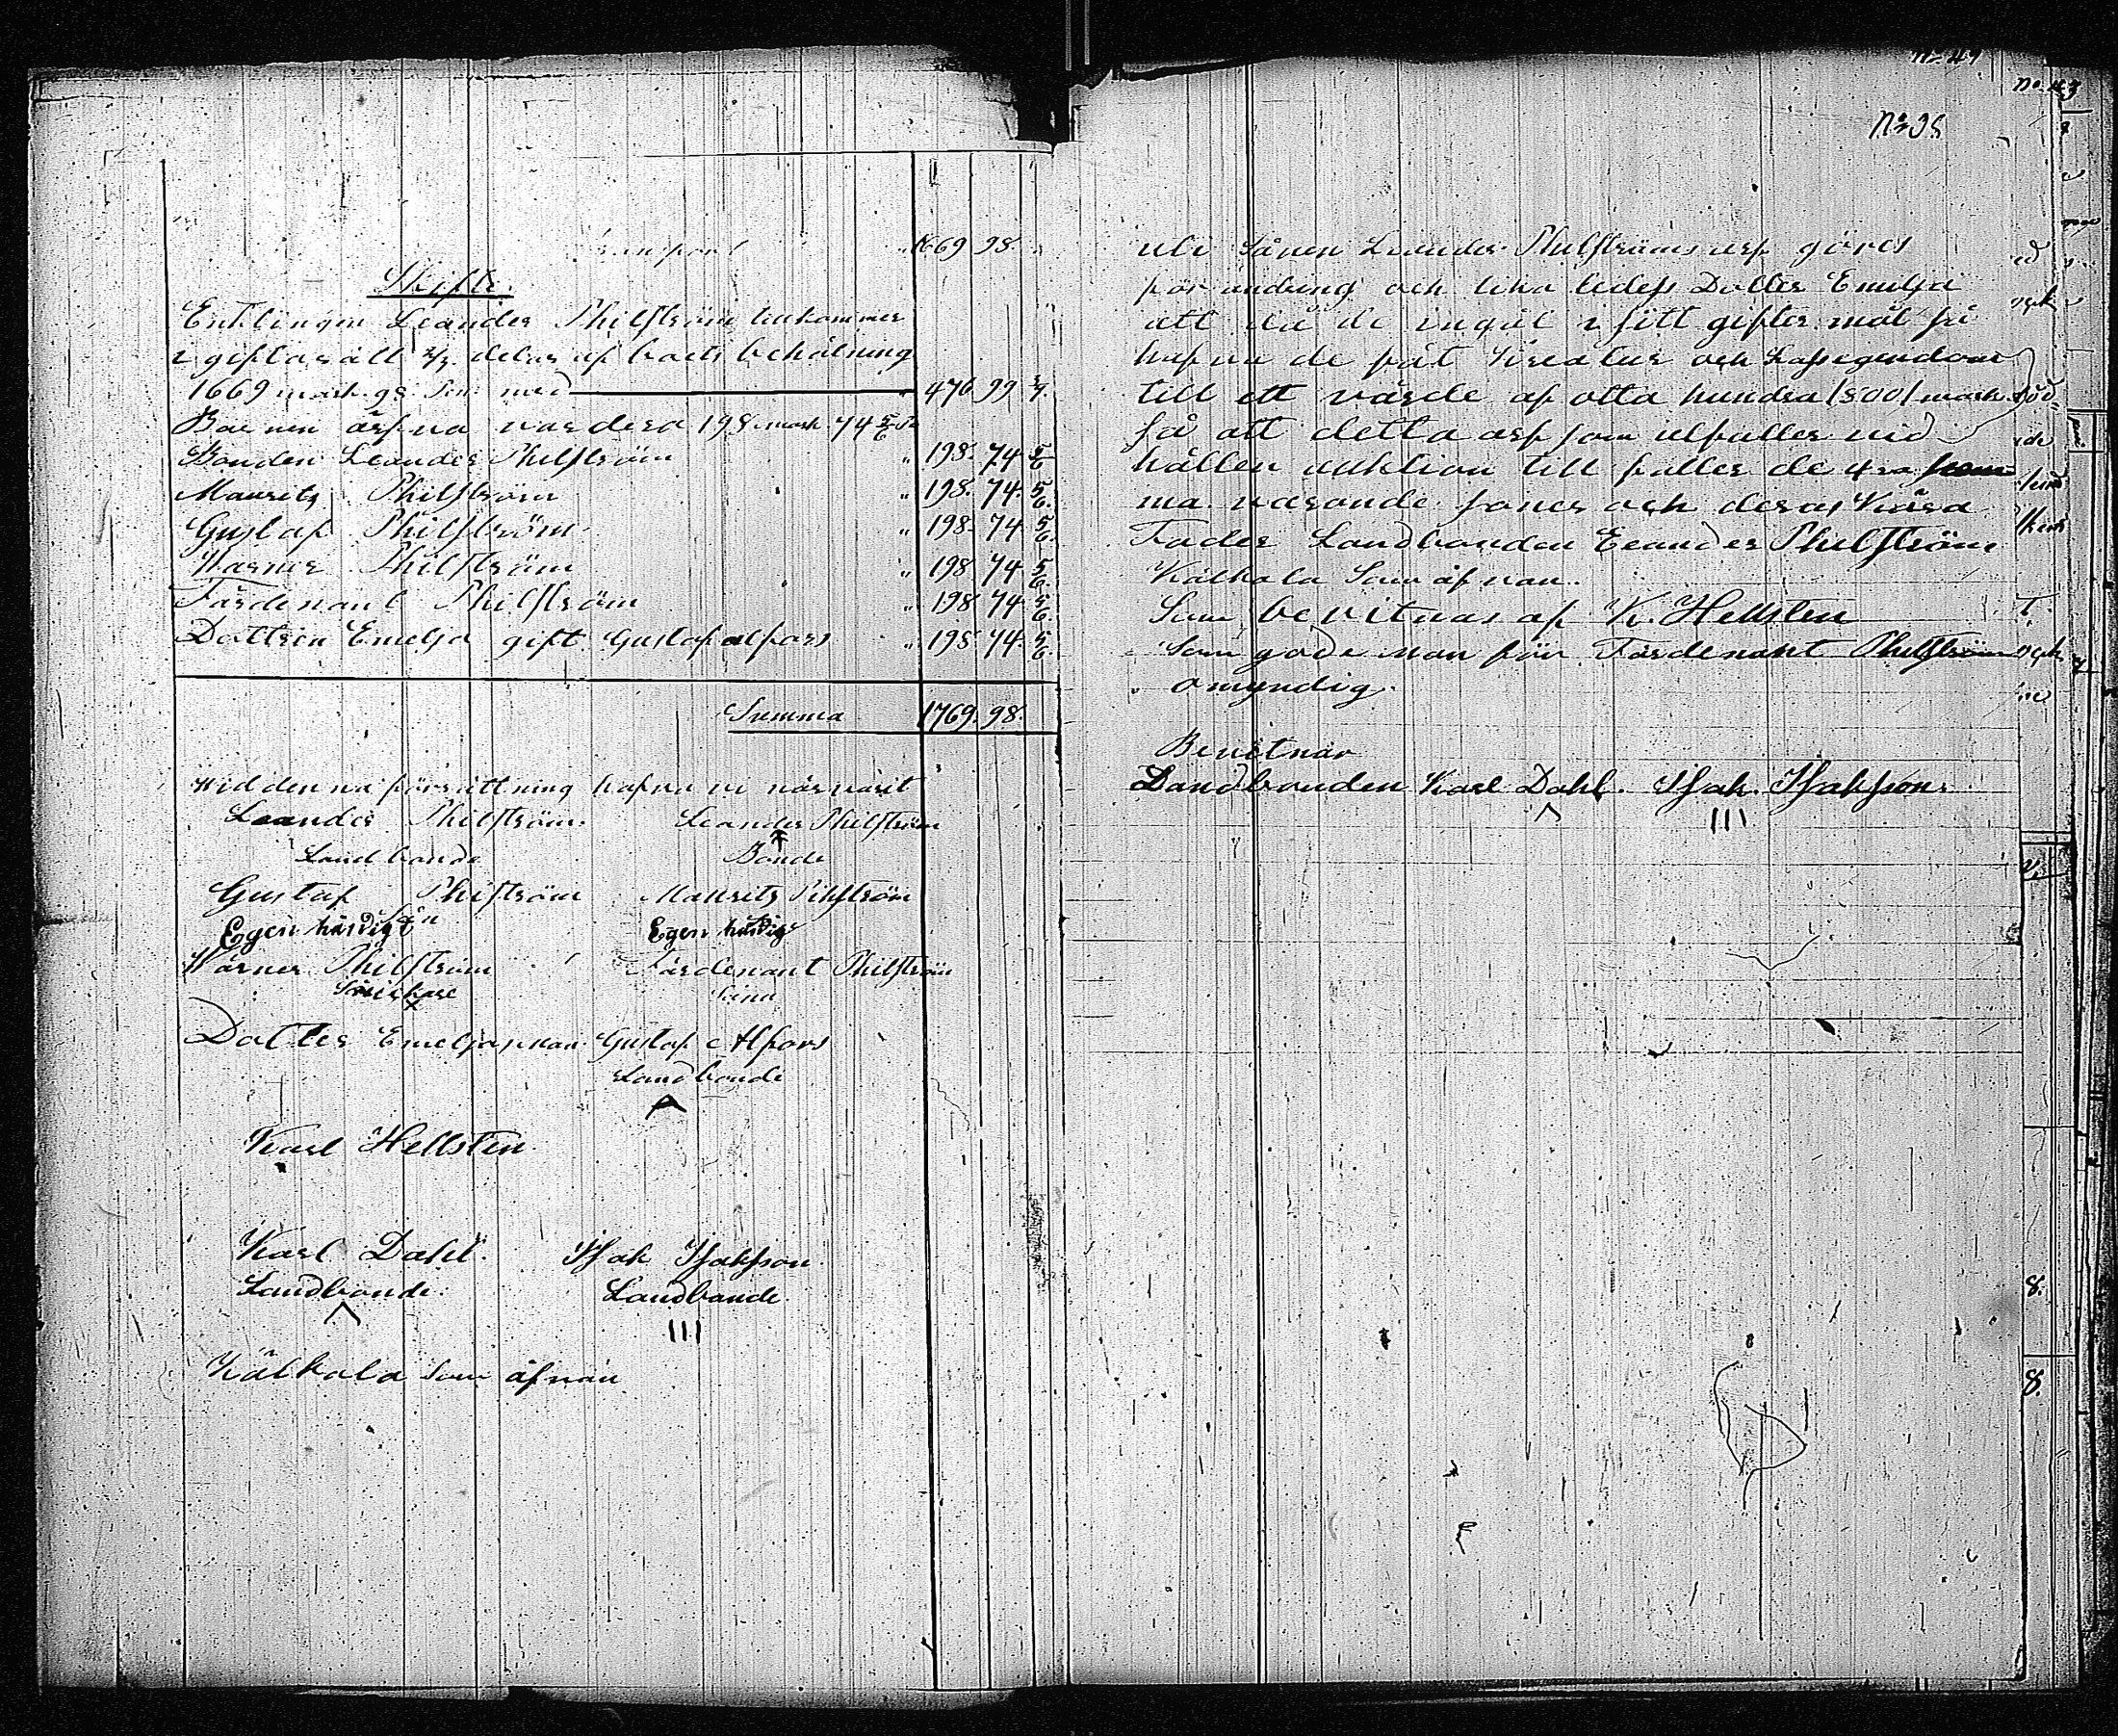 Transport " 1669 98.
Skifte.
Enklingen Leander Philström tillkommer
i giftorätt 2/7 delar af boets behålning
1669 mark. 98 pen. med 476 99 3/7.
Barnen ärfva vardera 198 mark 74 5/6
Bonden Leander Philström " 198. 74 5/6
Maurits Philström " 198. 74. 5/6.
Gustaf Philström " 198. 74 5/6.
Wärner Philström " 198 74 5/6.
Färdenant Philström " 198 74 5/6
Dottren Emelja gift Gustaf alfors " 198. 74. 5/6.
Summa 1769. 98.
Wid denna försättning hafva vi närvarit
Leander Philström Leander Philström
Landbonde Bonde
Gustaf Philström Maurits Pihlström
Sån
Egen händigt Egen händig
Wärner Philström Färdenant Philström
Såner
Dotter Emeljas man Gustaf Alfors
Landbonde
Karl Hellsten
Karl Dahl. Isak Isaksson.
Landbonde. Landbonde.
III
Kålkala som åfvan
No 47
No. 43
No 98
uti Sånen Leander Philströms arf göres
förändring och lika ledes Dotter Emilja
att då de ingåt i sitt giftermål så
hafva de fåt Kreatur och Lösegendom
till ett värde af otta hundra /800/ mark
så att detta arf som utfaller vid
hållen auktion till faller de 4ra
ma varande söner och deras Kära
Fader Landbonden Leander Philström
Kålkala Som åfvan.
Som bevitnas af K. Hellsten
Som gode man för Färdenant Philström
omyndig.
Bevitnar
Landbonden Karl Dahl. Isak. Isaksson.
III
8.
8.